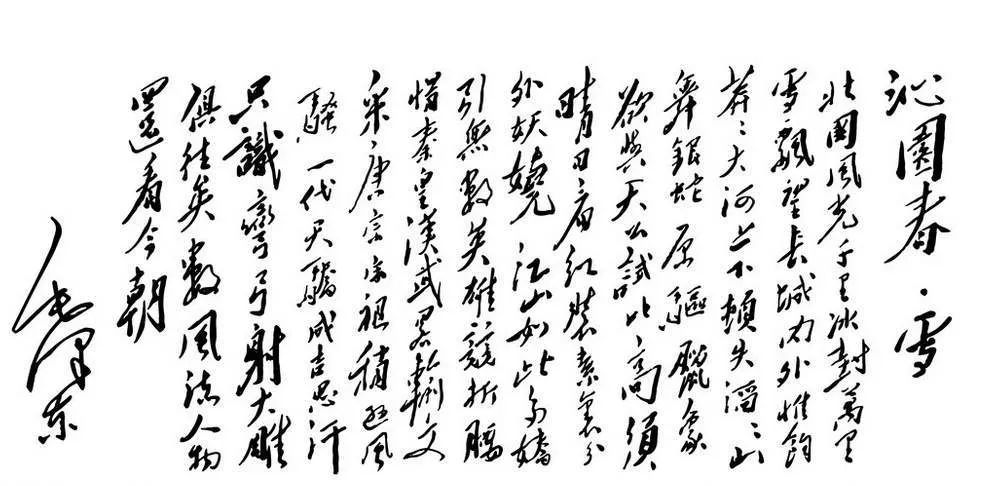 沁園春·雪
北國風光千里冰封萬里
雪飄望長城內外惟餘
莽々大河上下頓失滔々山
舞銀蛇原驅臘象
欲與天公試比高須
晴日看紅裝素裹分
外妖嬈江山如此多嬌
引無數英雄競折腰
惜秦皇漢武略輸文
采唐宗宋祖稍遜風
騷一代天驕成吉思汗
只識彎弓射大雕
俱往矣數風流人物
還看今朝
毛澤東